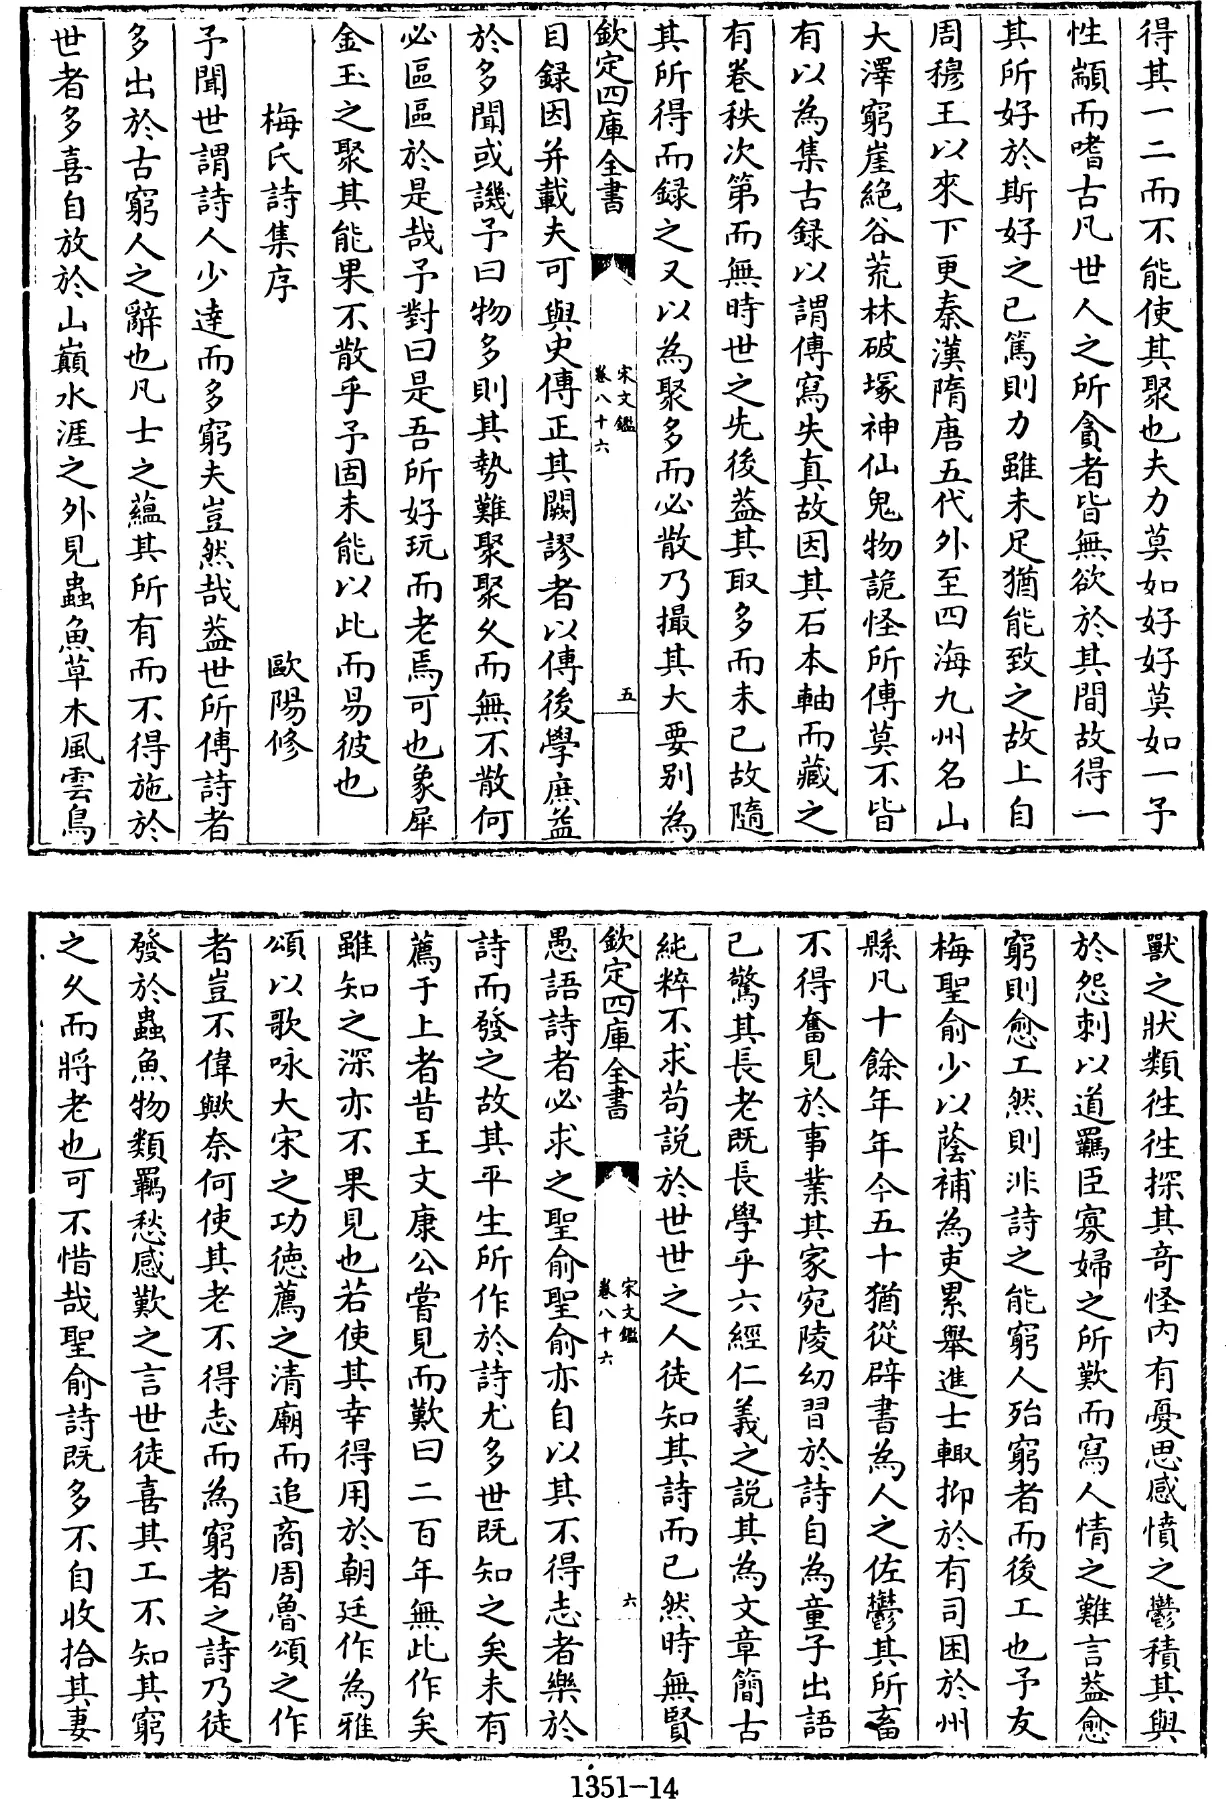 得其一二而不能使其聚也夫力莫如好好莫如一予
性顓而嗜古凡世人之所貪者皆無欲於其間故得一
其所好於斯好之已篤則力雖未足猶能致之故上自
周穆王以來下更秦漢隋唐五代外至四海九州名山
大澤窮崖絶谷荒林破塜神仙鬼物詭怪所傳莫不皆
有以為集古録以謂傳寫失真故因其石本軸而藏之
有卷秩次第而無時世之先後葢其取多而未已故隨
其所得而録之又以為聚多而必散乃撮其大要别為
欽定四庫全書
宋文鑑
卷八十六
五
目録因并載夫可與史傳正其闕謬者以傳後學庶益
於多聞或譏予曰物多則其勢難聚聚久而無不散何
必區區於是哉予對曰是吾所好玩而老焉可也象犀
金玉之聚其能果不散乎予固未能以此而易彼也
梅氏詩集序
歐陽修
予聞世謂詩人少達而多窮夫豈然哉葢世所傳詩者
多出於古窮人之辭也凡士之藴其所有而不得施於
世者多喜自放於山巔水涯之外見蟲魚草木風雲鳥
獸之狀類徃徃探其奇怪内有憂思感憤之鬱積其興
於怨刺以道羈臣寡婦之所歎而寫人情之難言葢愈
窮則愈工然則非詩之能窮人殆窮者而後工也予友
梅聖俞少以蔭補為吏累舉進士輙抑於有司困於州
縣凡十餘年年今五十猶從辟書為人之佐鬱其所畜
不得奮見於事業其家宛陵幼習於詩自為童子出語
已驚其長老既長學乎六經仁義之説其為文章簡古
純粹不求苟説於世世之人徒知其詩而已然時無賢
欽定四庫全書
宋文鑑
卷八十六
六
愚語詩者必求之聖俞聖俞亦自以其不得志者樂於
詩而發之故其平生所作於詩尤多世既知之矣未有
薦于上者昔王文康公嘗見而歎曰二百年無此作矣
雖知之深亦不果見也若使其幸得用於朝廷作為雅
頌以歌咏大宋之功德薦之清廟而追商周魯頌之作
者豈不偉歟奈何使其老不得志而為窮者之詩乃徒
發於蟲魚物類羈愁感歎之言世徒喜其工不知其窮
之久而將老也可不惜哉聖俞詩既多不自收拾其妻
1351-14